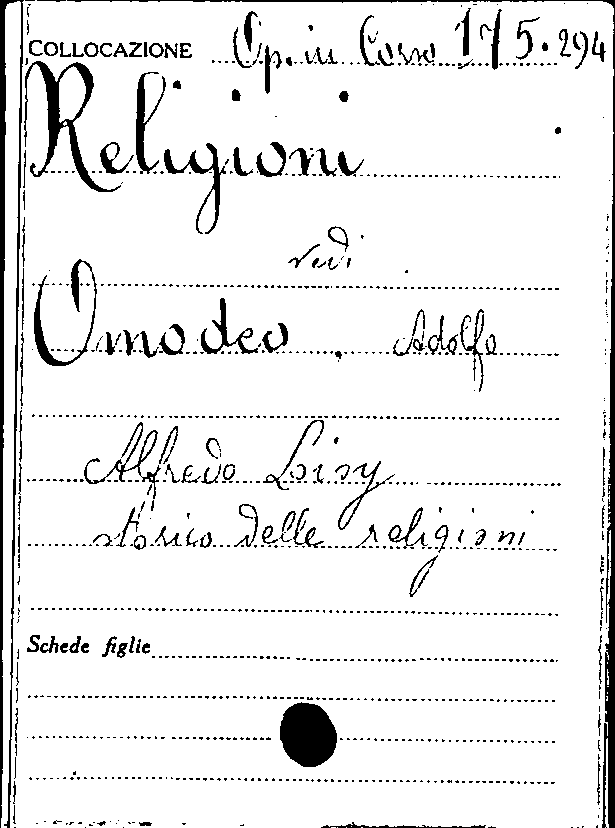 COLLOCAZIONE Op. in Corso 175.294
Religioni
vedi
Omodeo, Adolfo
Alfredo Loisy
storico delle religioni
Schede figlie